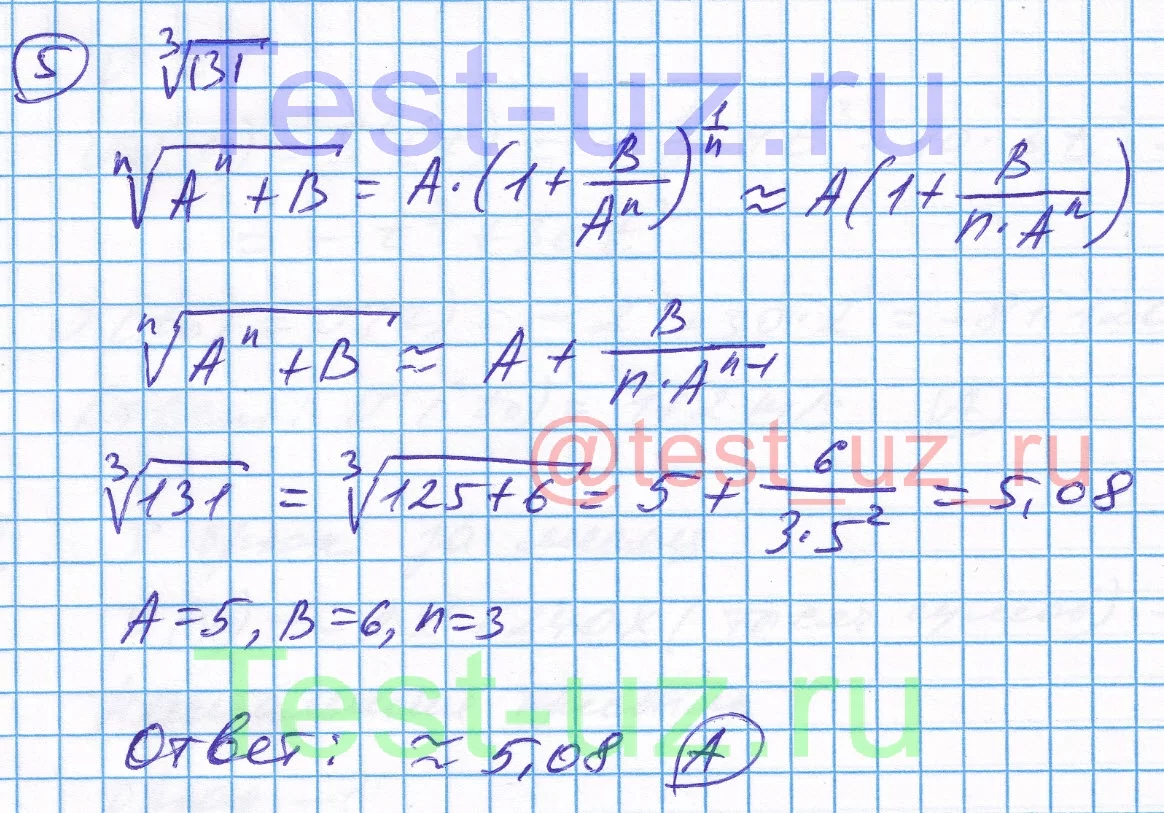 5 ∛131
Test-uz.ru
ⁿ√(Aⁿ + B) = A·(1 + B/Aⁿ)^(1/n) ≈ A(1 + B/(n·Aⁿ))
ⁿ√(Aⁿ + B) ≈ A + B/(n·Aⁿ⁻¹)
@test_uz_ru
∛131 = ∛(125+6) = 5 + 6/(3·5²) = 5,08
A=5, B=6, n=3
Test-uz.ru
Ответ: ≈ 5,08 A